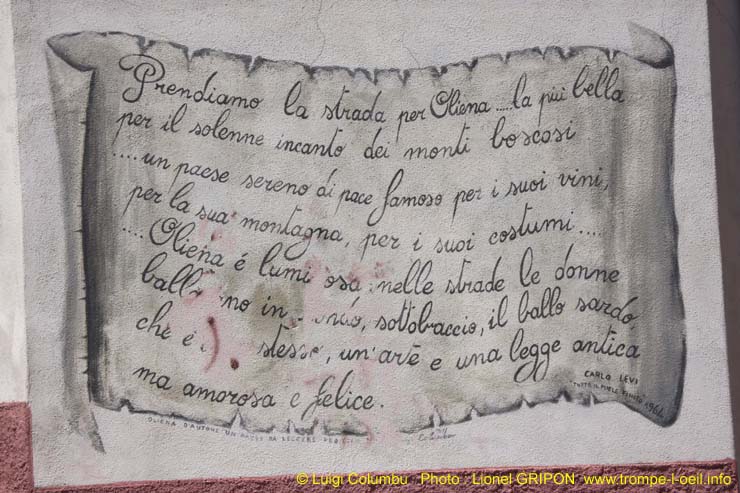 Prendiamo la strada per Oliena.....la più bella
per il solenne incanto dei monti boscosi
....un paese sereno di pace famoso per i suoi vini,
per la sua montagna, per i suoi costumi....
....Oliena é luminosa nelle strade le donne
ballano in tondo, sottobraccio, il ballo sardo,
che é stesse, un'arte e una legge antica
ma amorosa e felice.
CARLO LEVI
TUTTO IL MIELE È FINITO 1964
OLIENA D'AUTORE UN PAESE DA LEGGERE
© Luigi Columbu Photo : Lionel GRIPON www.trompe-l-oeil.info